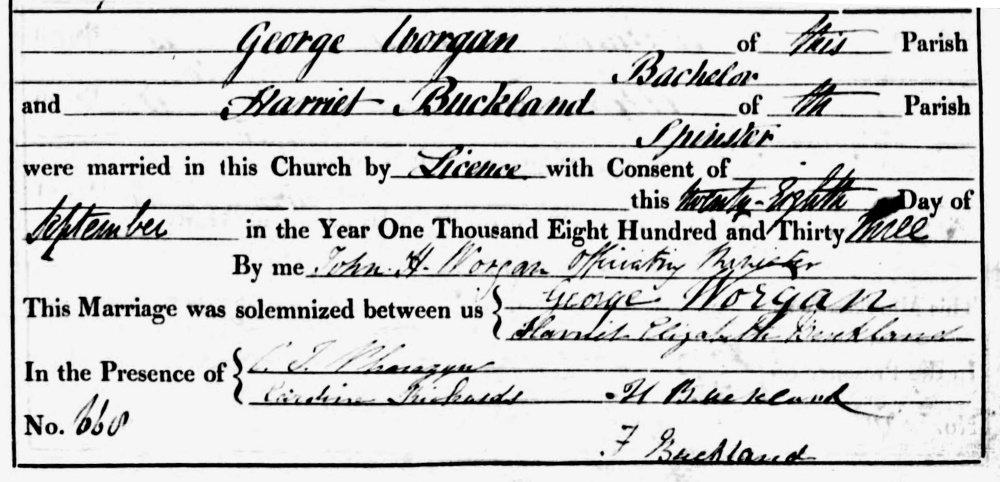 George Worgan of this Parish
Bachelor
and Harriet Buckland of th Parish
Spinster
were married in this Church by Licence with Consent of
this twenty-Eighth Day of
September in the Year One Thousand Eight Hundred and Thirty three
By me John H. Worgan Officiating Minister
This Marriage was solemnized between us George Worgan
Harriet Elizabeth Buckland
In the Presence of C. J.
Caroline Rickards H Buckland
No. 668
F Buckland